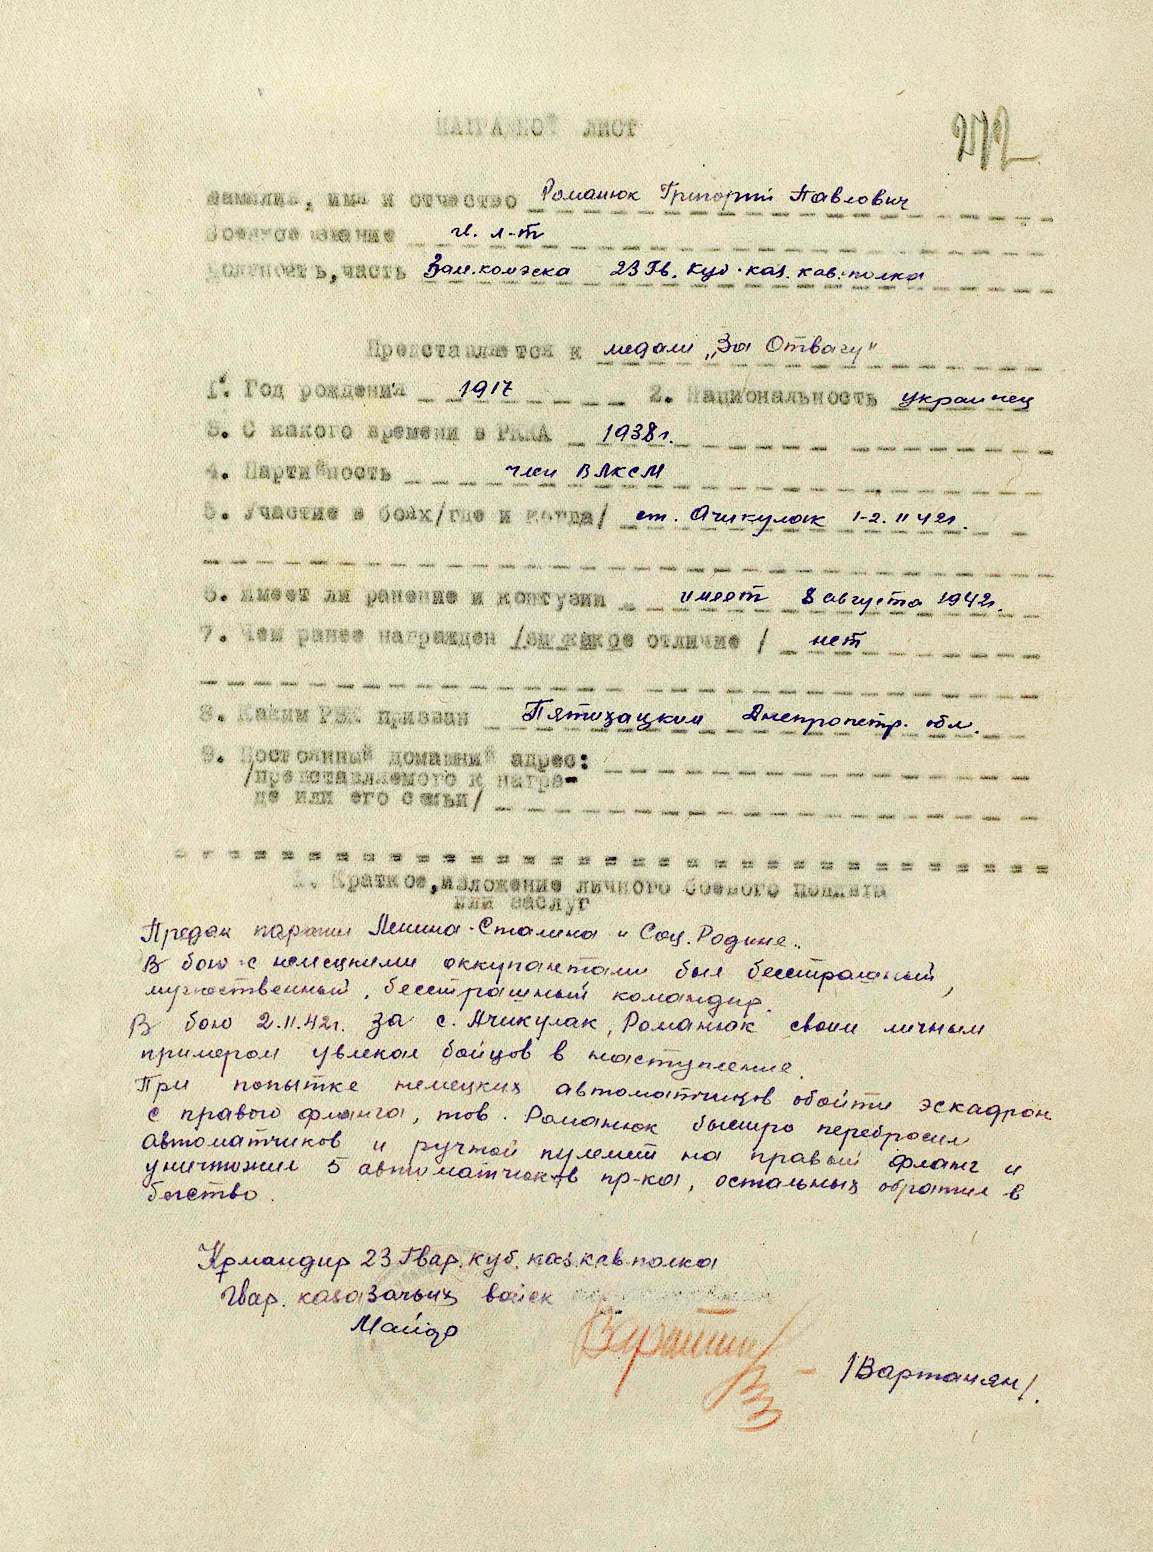 272
НАГРАДНОЙ ЛИСТ
Фамилия, имя и отчество Романюк Григорий Павлович
Военное звание гв. л-т
Должность, часть Зам. комэска 23 Гв. Куб. каз. кав. полка
Представляется к медали „За Отвагу"
1. Год рождения 1917 2. Национальность украинец
3. С какого времени в РККА 1938г.
4. Партийность член ВЛКСМ
5. Участие в боях/где и когда/ ст. Ачикулак 1-2. 11 42г.
6. Имеет ли ранение и контузии имеет 8 августа 1942г.
7. Чем ранее награжден /за какое отличие / нет
8. Каким РВК призван Пятихацким Днепропетр. обл.
9. Постоянный домашний адрес:
/представляемого к награ-
де или его семьи/
1. Краткое, изложение личного боевого подвига
или заслуг
Предан партии Ленина-Сталина и Соц. Родине.
В бою с немецкими оккупантами был бесстрашный,
мужественный, бесстрашный командир.
В бою 2.11.42г. за с. Ачикулак, Романюк своим личным
примером увлекал бойцов в наступление.
При попытке немецких автоматчиков обойти эскадрон
с правого фланга, тов. Романюк быстро перебросил
автоматчиков и ручной пулемет на правый фланг и
уничтожил 5 автоматчиков пр-ка, остальных обратил в
бегство.
Командир 23 Гвар. куб. каз. кав. полка
Гвар. казазачьих войск
Майор
/Вартанян/.